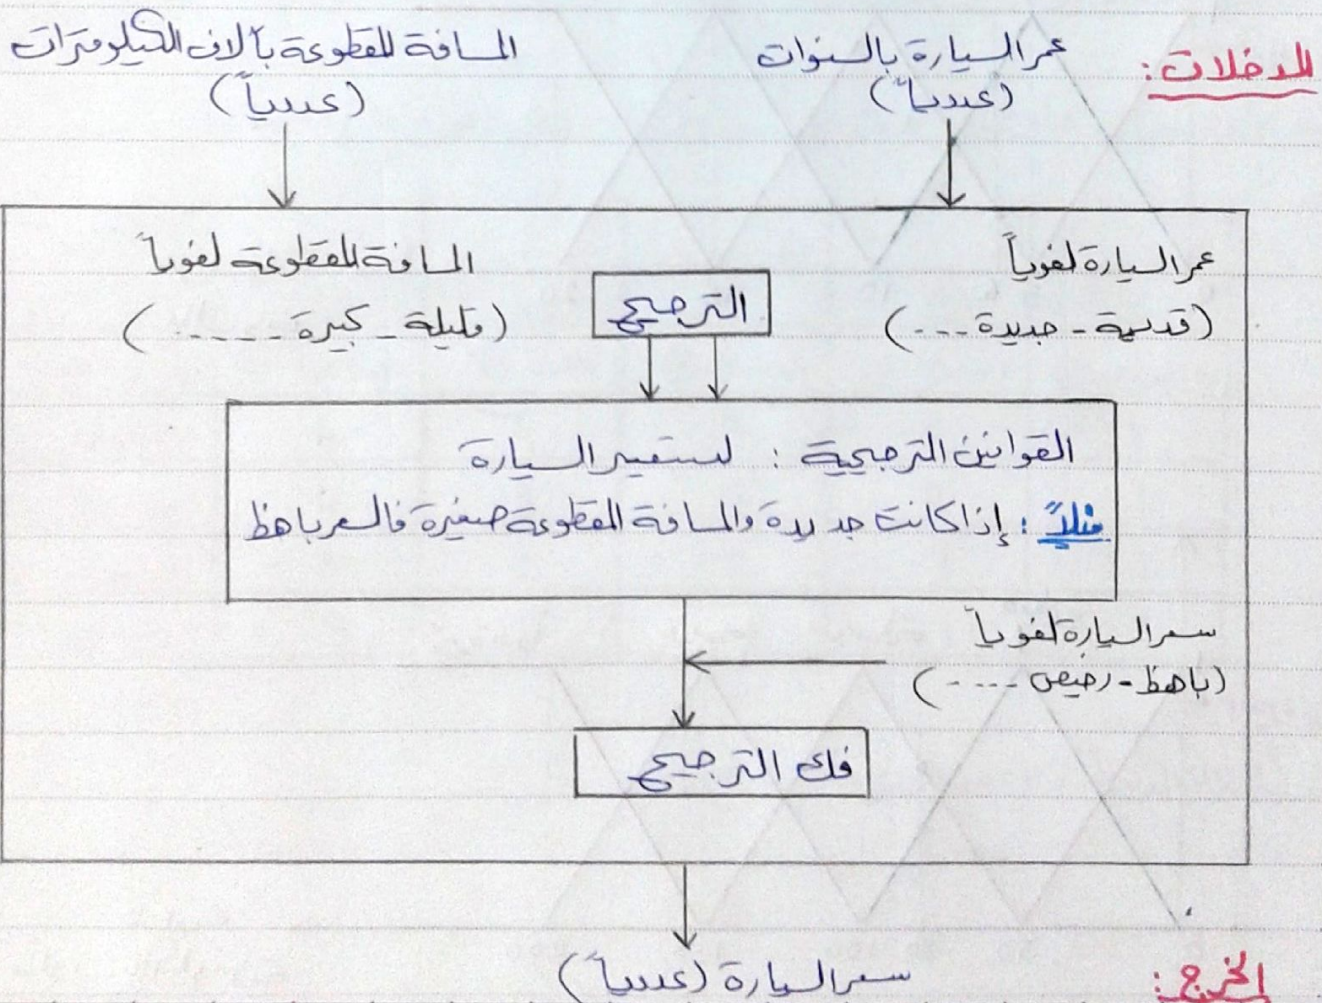 المدخلات:
عمر السيارة بالسنوات
(عددياً)
المسافة المقطوعة بآلاف الكيلومترات
(عددياً)
عمر السيارة لغوياً
(قديمة - جديدة ---)
الترجيح
المسافة المقطوعة لغوياً
(قليلة - كبيرة -----)
القوانين الترجيحية : لتسعير السيارة
مثلاً : إذا كانت جديدة والمسافة المقطوعة صغيرة فالسعر باهظ
سعر السيارة لغوياً
(باهظ - رخيص ----)
فك الترجيح
الخرج:
سعر السيارة (عددياً)